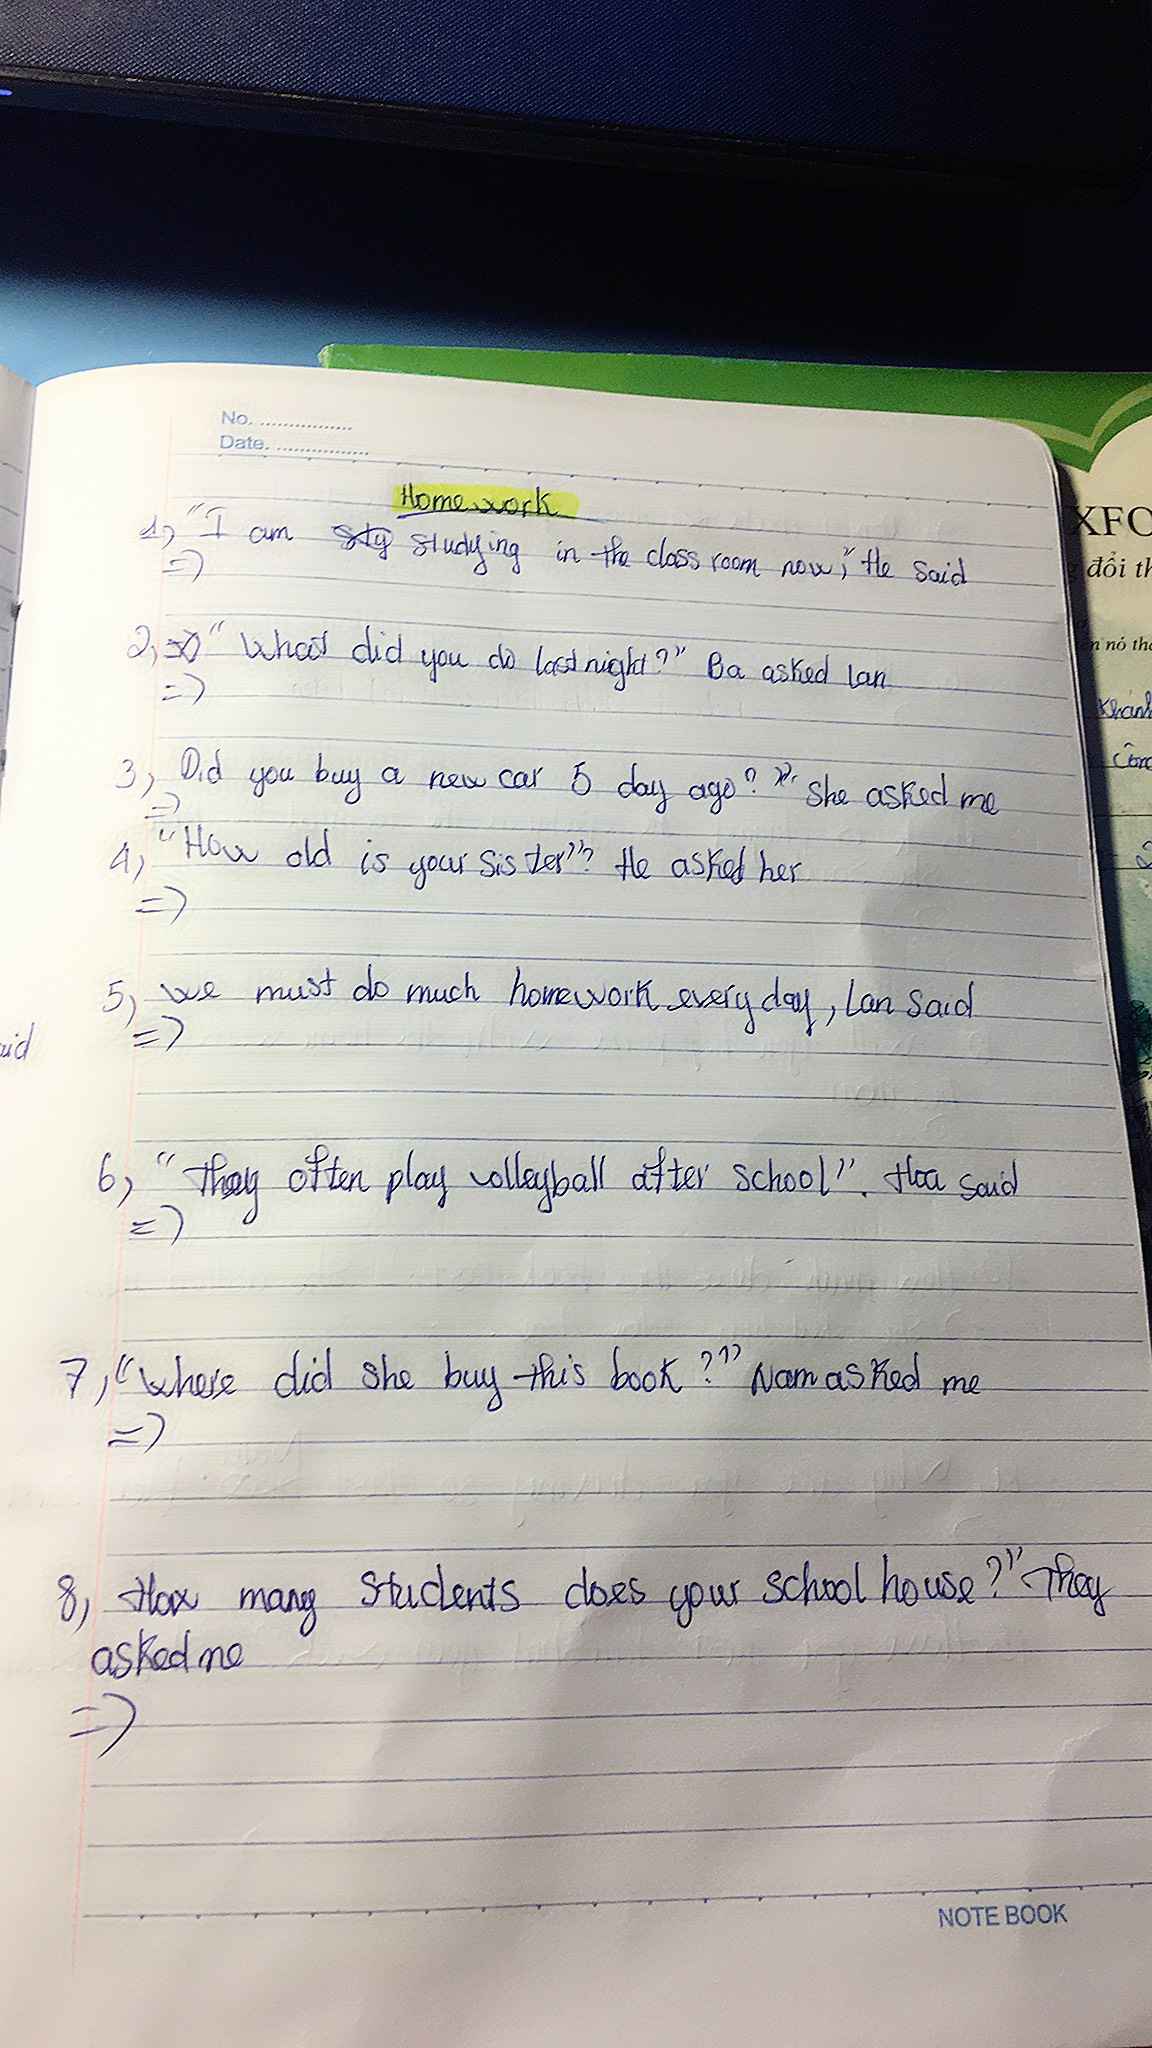 No. ..................
Date. ..................
Homework
1, "I am studying in the class room now", He said
=>
2, "What did you do last night?" Ba asked Lan
=>
3, Did you buy a new car 5 day ago?" She asked me
=>
4, "How old is your sister"? He asked her
=>
5, We must do much homework every day, Lan said
=>
6, "They often play volleyball after school". Hoa said
=>
7, "Where did she buy this book?" Nam asked me
=>
8, How many students does your school house?" They
asked me
=>
NOTE BOOK
XFO
đổi th
nó tha
Khánh